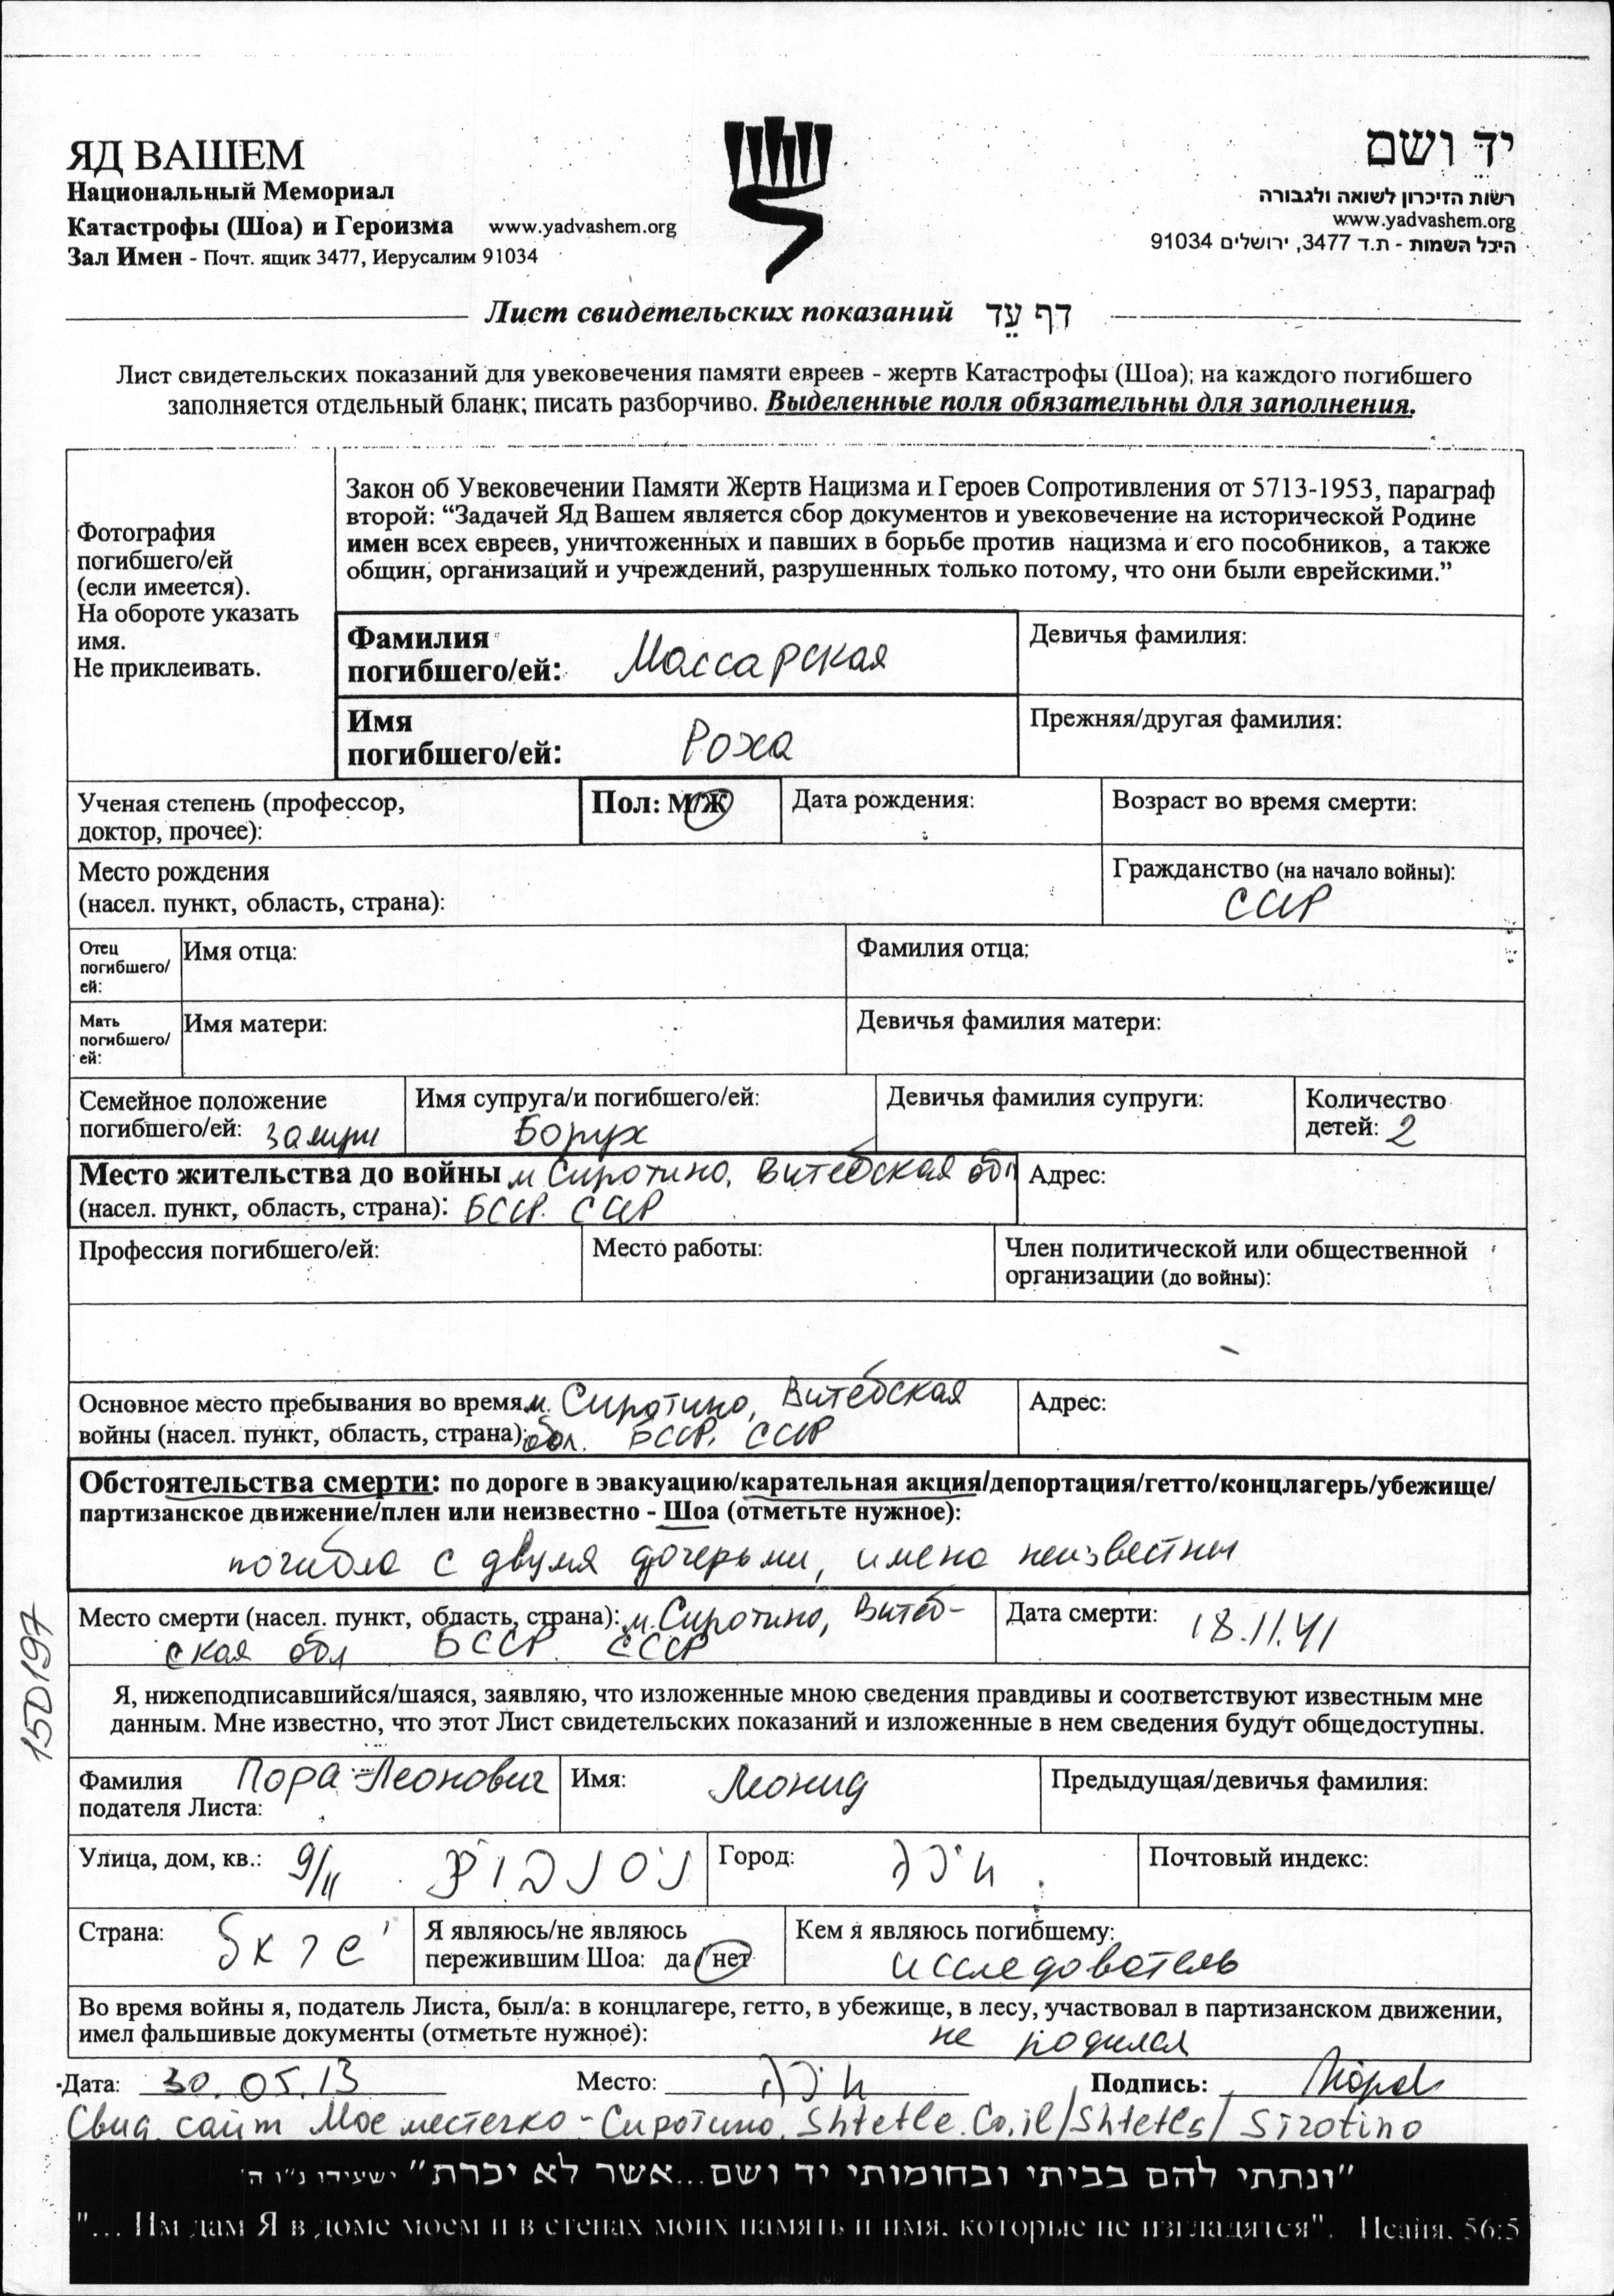 ЯД ВАШЕМ
Национальный Мемориал
Катастрофы (Шоа) и Героизма www.yadvashem.org
Зал Имен - Почт. ящик 3477, Иерусалим 91034
יד ושם
רשות הזיכרון לשואה ולגבורה
www.yadvashem.org
היכל השמות - ת.ד 3477, ירושלים 91034
Лист свидетельских показаний דף עֵד
Лист свидетельских показаний для увековечения памяти евреев - жертв Катастрофы (Шоа); на каждого погибшего
заполняется отдельный бланк; писать разборчиво. Выделенные поля обязательны для заполнения.
Фотография
погибшего/ей
(если имеется).
На обороте указать
имя.
Не приклеивать.
Закон об Увековечении Памяти Жертв Нацизма и Героев Сопротивления от 5713-1953, параграф
второй: “Задачей Яд Вашем является сбор документов и увековечение на исторической Родине
имен всех евреев, уничтоженных и павших в борьбе против нацизма и его пособников, а также
общин, организаций и учреждений, разрушенных только потому, что они были еврейскими.”
Фамилия
погибшего/ей: Массарская
Девичья фамилия:
Имя
погибшего/ей: Роха
Прежняя/другая фамилия:
Ученая степень (профессор,
доктор, прочее):
Пол: М/Ж
Дата рождения:
Возраст во время смерти:
Место рождения
(насел. пункт, область, страна):
Гражданство (на начало войны):
СССР
Отец
погибшего/
ей:
Имя отца:
Фамилия отца:
Мать
погибшего/
ей:
Имя матери:
Девичья фамилия матери:
Семейное положение
погибшего/ей: замуж
Имя супруга/и погибшего/ей:
Борух
Девичья фамилия супруги:
Количество
детей: 2
Место жительства до войны м Сиротино, Витебская обл
(насел. пункт, область, страна): БССР. СССР
Адрес:
Профессия погибшего/ей:
Место работы:
Член политической или общественной
организации (до войны):
Основное место пребывания во время м. Сиротино, Витебская
войны (насел. пункт, область, страна): обл. БССР. СССР
Адрес:
Обстоятельства смерти: по дороге в эвакуацию/карательная акция/депортация/гетто/концлагерь/убежище/
партизанское движение/плен или неизвестно - Шоа (отметьте нужное):
погибла с двумя дочерьми, имена неизвестны
Место смерти (насел. пункт, область, страна): м. Сиротино, Витеб-
ская обл БССР. СССР
Дата смерти: 18.11.41
150197
Я, нижеподписавшийся/шаяся, заявляю, что изложенные мною сведения правдивы и соответствуют известным мне
данным. Мне известно, что этот Лист свидетельских показаний и изложенные в нем сведения будут общедоступны.
Фамилия Пора-Леонович
подателя Листа:
Имя: Леонид
Предыдущая/девичья фамилия:
Улица, дом, кв.: 9/11
Город: חיפה
Почтовый индекс:
Страна: ישראל
Я являюсь/не являюсь
пережившим Шоа: да/нет
Кем я являюсь погибшему:
исследователь
Во время войны я, податель Листа, был/а: в концлагере, гетто, в убежище, в лесу, участвовал в партизанском движении,
имел фальшивые документы (отметьте нужное): не родился
Дата: 30.05.13 Место: חיפה Подпись:
Свид. сайт Мое местечко - Сиротино. Shtetle.Co.il/Shtetls/Sirotino
"ונתתי להם בביתי ובחומותי יד ושם...אשר לא יכרת" ישעיהו נ"ו ה'
"... Им дам Я в доме моем и в стенах моих память и имя, которые не изгладятся". Исайя, 56:5